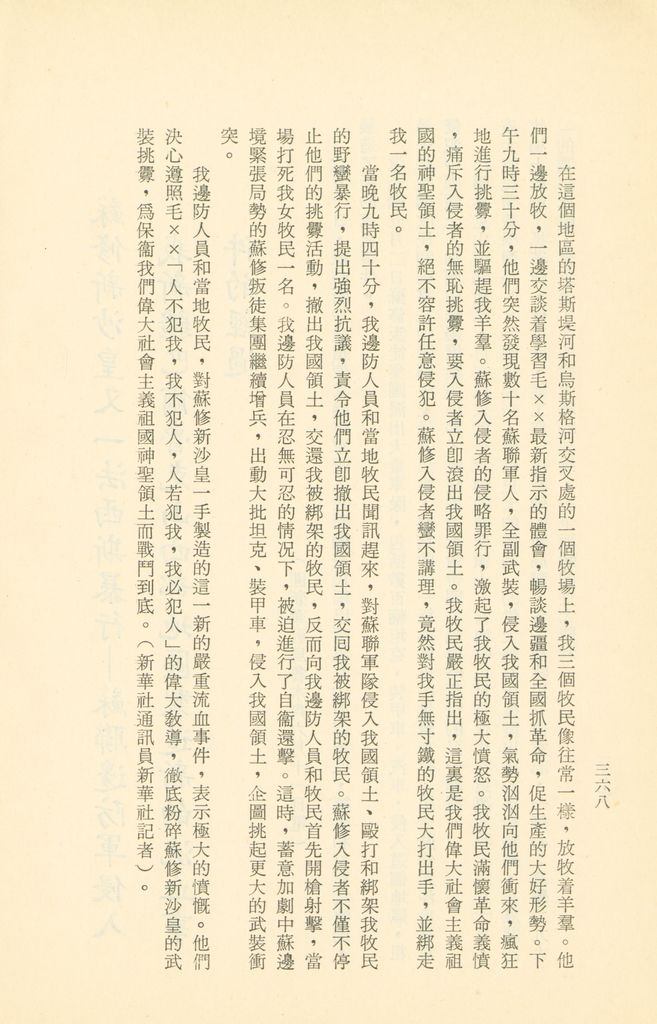 三六八
在這個地區的塔斯堤河和烏斯格河交叉處的一個牧場上，我三個牧民像往常一樣，放牧着羊羣。他
們一邊放牧，一邊交談着學習毛××最新指示的體會，暢談邊疆和全國抓革命，促生產的大好形勢。下
午九時三十分，他們突然發現數十名蘇聯軍人，全副武裝，侵入我國領土，氣勢汹汹向他們衝來，瘋狂
地進行挑釁，並驅趕我羊羣。蘇修入侵者的侵略罪行，激起了我牧民的極大憤怒。我牧民滿懷革命義憤
，痛斥入侵者的無恥挑釁，要入侵者立卽滾出我國領土。我牧民嚴正指出，這裏是我們偉大社會主義祖
國的神聖領土，絕不容許任意侵犯。蘇修入侵者蠻不講理，竟然對我手無寸鐵的牧民大打出手，並綁走
我一名牧民。
當晚九時四十分，我邊防人員和當地牧民聞訊趕來，對蘇聯軍隊侵入我國領土、毆打和綁架我牧民
的野蠻暴行，提出強烈抗議，責令他們立卽撤出我國領土，交囘我被綁架的牧民。蘇修入侵者不僅不停
止他們的挑釁活動，撤出我國領土，交還我被綁架的牧民，反而向我邊防人員和牧民首先開槍射擊，當
場打死我女牧民一名。我邊防人員在忍無可忍的情況下，被迫進行了自衞還擊。這時，蓄意加劇中蘇邊
境緊張局勢的蘇修叛徒集團繼續增兵，出動大批坦克、裝甲車，侵入我國領土，企圖挑起更大的武裝衝
突。
我邊防人員和當地牧民，對蘇修新沙皇一手製造的這一新的嚴重流血事件，表示極大的憤慨。他們
決心遵照毛××「人不犯我，我不犯人，人若犯我，我必犯人」的偉大教導，徹底粉碎蘇修新沙皇的武
裝挑釁，爲保衞我們偉大社會主義祖國神聖領土而戰鬥到底。（新華社通訊員新華社記者）。